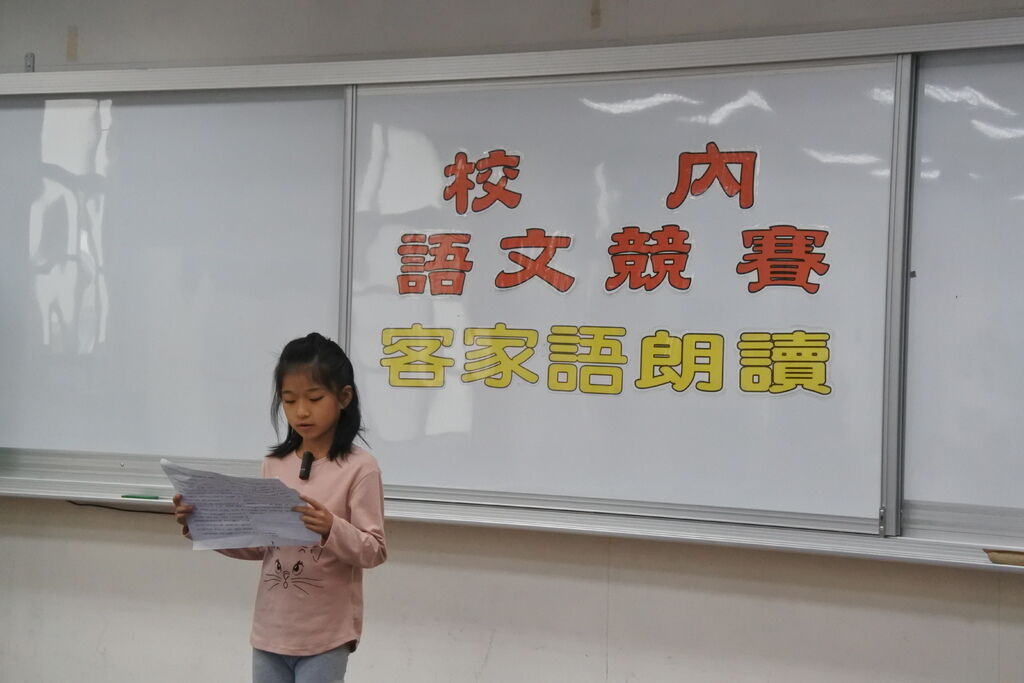 校內
語文競賽
客家語朗讀